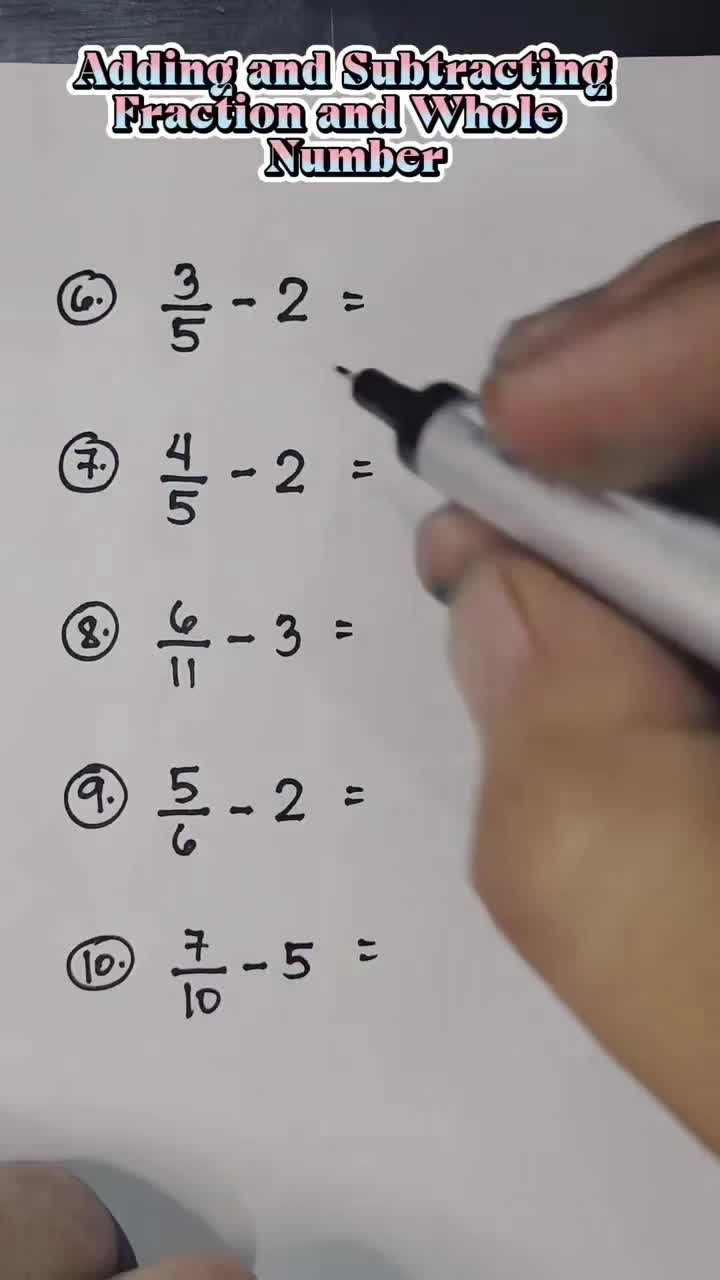 Adding and Subtracting
Fraction and Whole
Number
6. 3/5 - 2 =
7. 4/5 - 2 =
8. 6/11 - 3 =
9. 5/6 - 2 =
10. 7/10 - 5 =